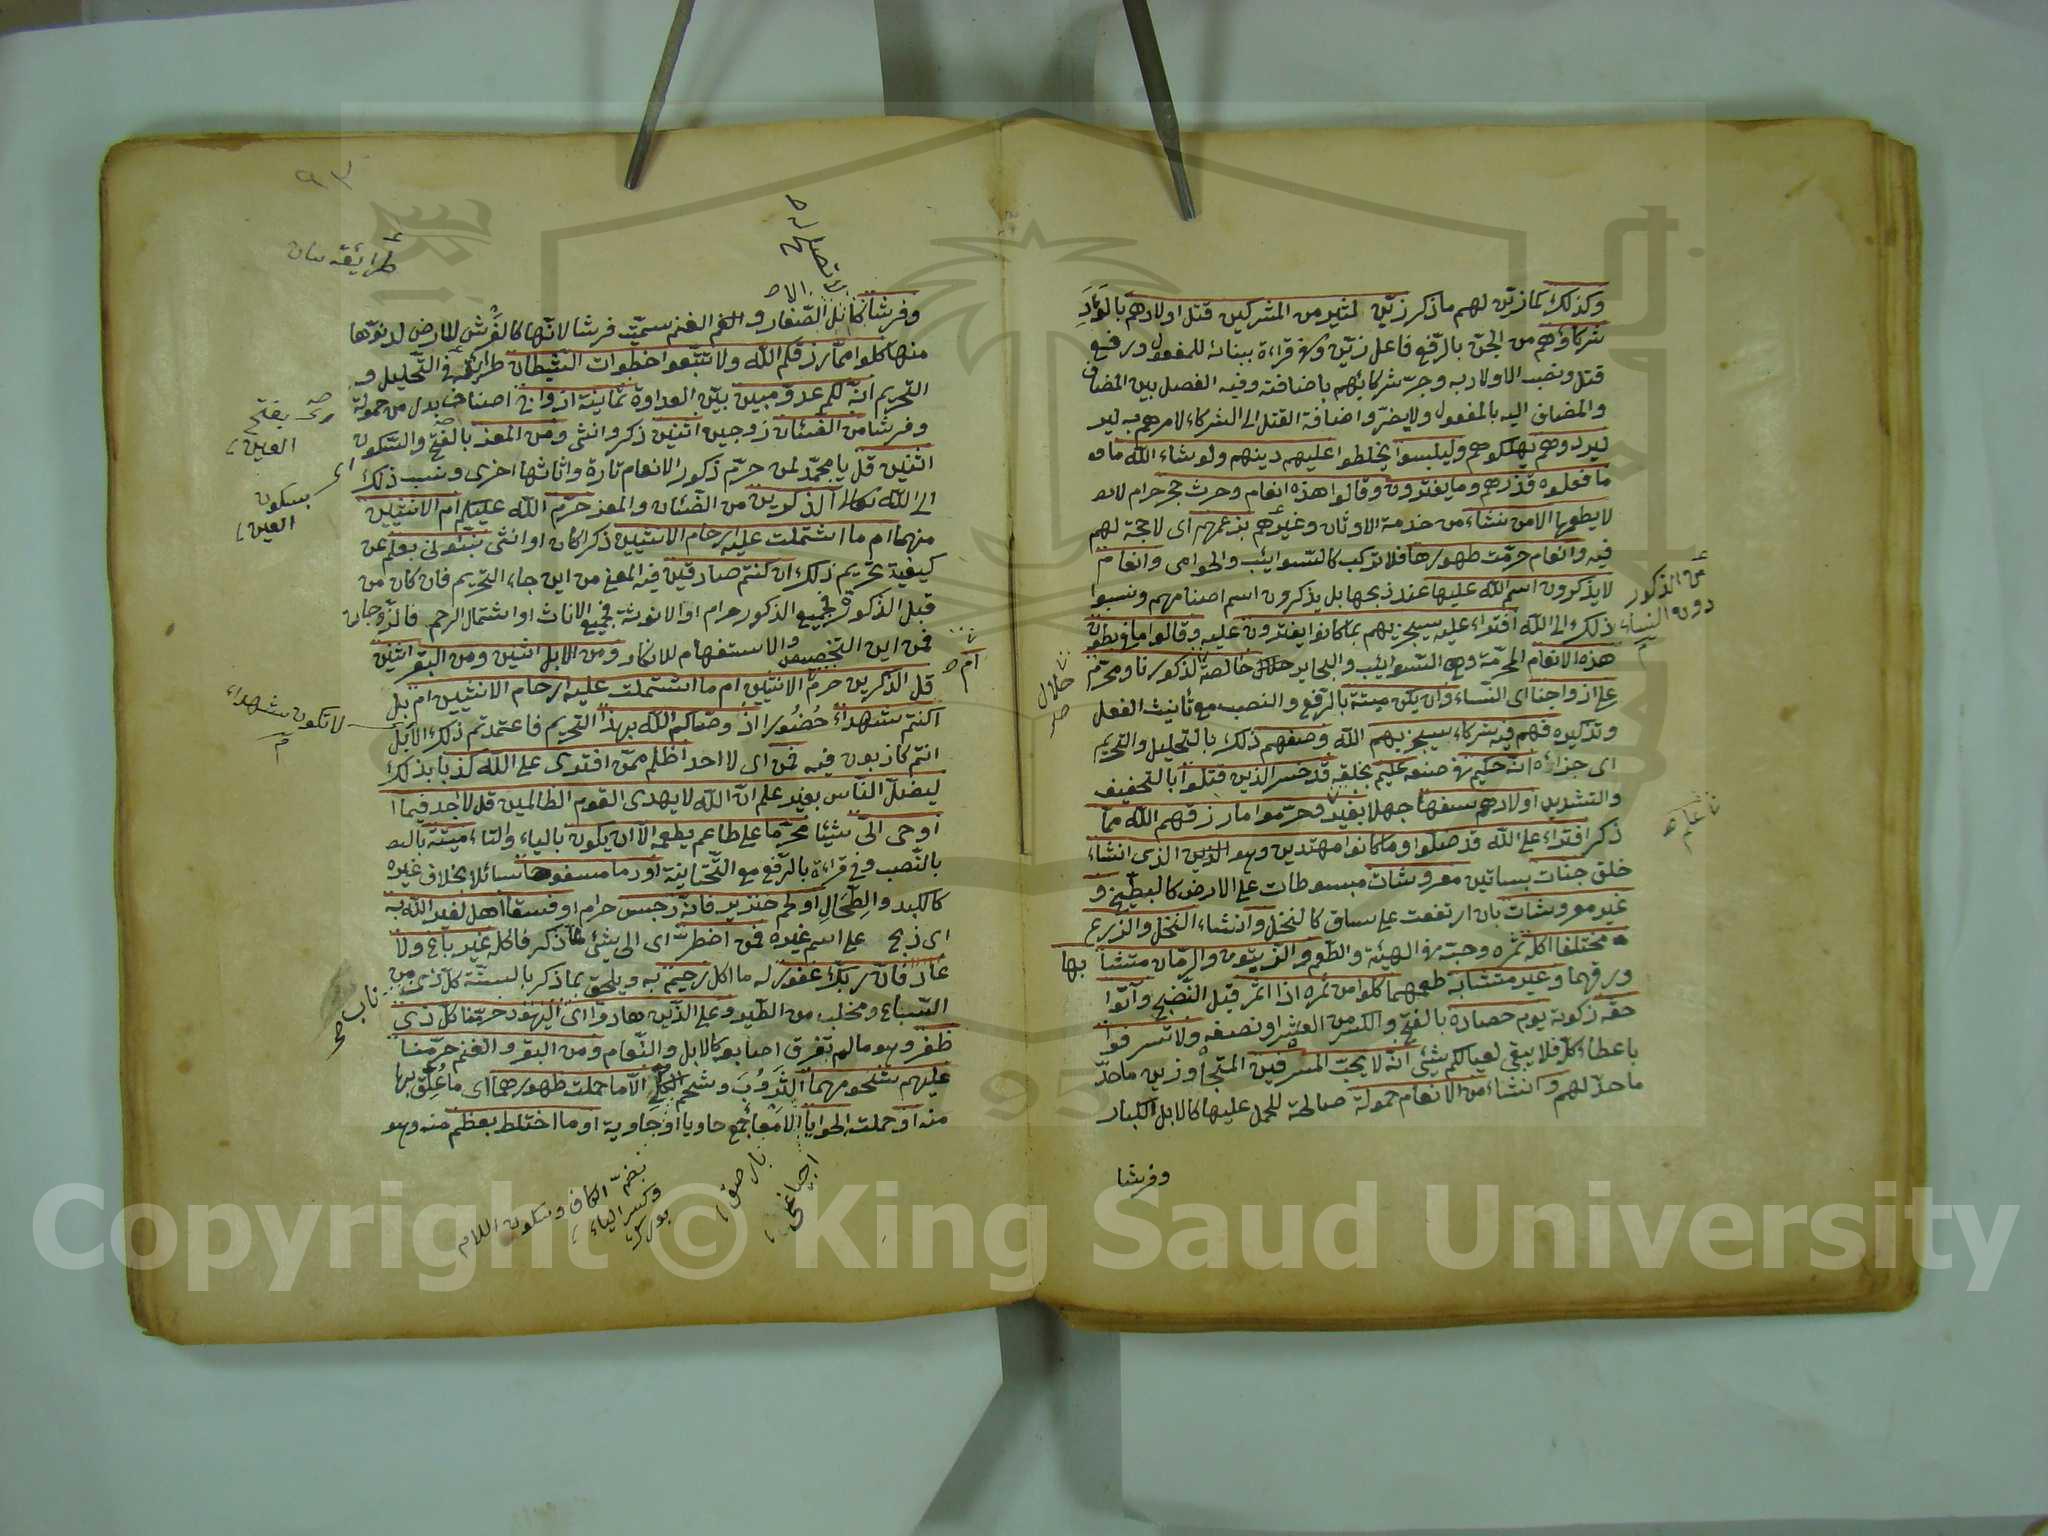 وكذلك كما زين لهم ما ذكر زين لكثير من المشركين قتل اولادهم بالوأد
شركاؤهم من الجن بالرفع فاعل زين وفى قراءة ببنائه للمفعول ورفع
قتل ونصب الاولاد به وجر شركائهم باضافته وفيه الفصل بين المضاف
والمضاف اليه بالمفعول ولا يضر واضافة القتل الى الشركاء لامرهم به لير
ليردوهم يهلكوهم وليلبسوا يخلطوا عليهم دينهم ولو شاء الله ما فه
ما فعلوه فذرهم وما يفترون وقالوا هذه انعام وحرث حجر حرام لا يط
لا يطعمها الا من نشاء من خدمة الاوثان وغيرهم بزعمهم اى لا حجة لهم
فيه وانعام حرمت ظهورها فلا تركب كالسوائب والحوامى وانعام
لا يذكرون اسم الله عليها عند ذبحها بل يذكرون اسم اصنامهم ونسبوا
ذلك الى الله افتراء عليه سيجزيهم بما كانوا يفترون عليه وقالوا ما فى بطون
هذه الانعام المحرمة وهى السوائب والبحاير حلال خالصة لذكورنا ومحرم
على ازواجنا اى النساء وان يكن ميتة بالرفع والنصب مع تأنيث الفعل
وتذكيره فهم فيه شركاء سيجزيهم الله وصفهم ذلك بالتحليل والتحريم
اى جزاءه انه حكيم فى صنعه عليم بخلقه قد خسر الذين قتلوا بالتخفيف
والتشديد اولادهم سفها جهلا بغير وحرموا ما رزقهم الله مما
ذكر افتراء على الله قد ضلوا وما كانوا مهتدين وهو الذى انشاء
خلق جنات بساتين معروشات مبسوطات على الارض كالبطيخ و
غير معروشات بان ارتفعت على ساق كالنخل وانشاء النخل والزرع
مختلفا اكله ثمره وحبه فى الهيئة والطعم والزيتون والرمان متشابها
ورقهما وغير متشابه طعمهما كلوا من ثمره اذا اثمر قبل النضج وآتوا
حقه زكوته يوم حصاده بالفتح والكسر من العشر او نصفه ولا تسرفوا
باعطاء كله فلا يبقى لعيالكم شئ انه لا يحب المسرفين المتجاوزين ما حد
ما حد لهم وانشاء من الانعام حمولة صالحة للحمل عليها كالابل الكبار
وفرشا
من الذكور
دون النساء
حلال
علم
٩٣
وفرشا كابل الصغار والغنم سميت فرشا لانها كالفرش للارض لدنوها
منها كلوا مما رزقكم الله ولا تتبعوا خطوات الشيطان طرائقه فى التحليل و
التحريم انه لكم عدو مبين بين العداوة ثمانية ازواج اصناف بدل من حمولة
وفرشا من الضئان زوجين اثنين ذكر وانثى ومن المعز بالفتح والسكون
اثنين قل يا محمد لمن حرم ذكور الانعام تارة واناثها اخرى ونسب ذلك
الى الله تعالى آلذكرين من الضئان والمعز حرم الله عليكم ام الانثيين
منهما ام ما اشتملت عليه ارحام الانثيين ذكرا كان او انثى نبئونى بعلم عن
كيفية تحريم ذلك ان كنتم صادقين فيه المعنى من اين جاء التحريم فان كان من
قبل الذكورة فجميع الذكور حرام او الانوثة فجميع الاناث او اشتمال الرحم فالزوجان
فمن اين التخصيص والاستفهام للانكار ومن الابل اثنين ومن البقر اثنين
قل آلذكرين حرم ام الانثيين ام ما اشتملت عليه ارحام الانثيين ام بل
اكنتم شهداء حضورا اذ وصاكم الله بهذا التحريم فاعتمدتم ذلك لا بل
انتم كاذبون فيه فمن اى لا احد اظلم ممن افترى على الله كذبا بذلك
ليضل الناس بغير علم ان الله لا يهدى القوم الظالمين قل لا اجد فيما ا
اوحى الى شيئا محرما على طاعم يطعمه الا ان يكون بالياء والتاء ميتة بالنص
بالنصب وفى قراءة بالرفع مع التحتانية او دما مسفوحا سائلا بخلاف غيره
كالكبد والطحال او لحم خنزير فانه رجس حرام او فسقا اهل لغير الله به
اى ذبح على اسم غيره فمن اضطر اى الى شئ مما ذكر فاكله غير باغ ولا
عاد فان ربك غفور له ما اكل رحيم به ويلحق بما ذكر بالسنة كل ذى من
السباع ومخلب من الطير وعلى الذين هادوا اى اليهود حرمنا كل ذى
ظفر وهو ما لم تفرق اصابعه كالابل والنعام ومن البقر والغنم حرمنا
عليهم شحومهما الثروب وشحم الكلى الا ما حملت ظهورهما اى ما علق بها
منه او حملته الحوايا الامعا جمع حاويا او حاوية او ما اختلط بعظم منه وهو
بفتح
العين
بسكون
العين
لا تكون شهداء
ناب
ام
بضم الكاف وسكون اللام
وكسر الياء